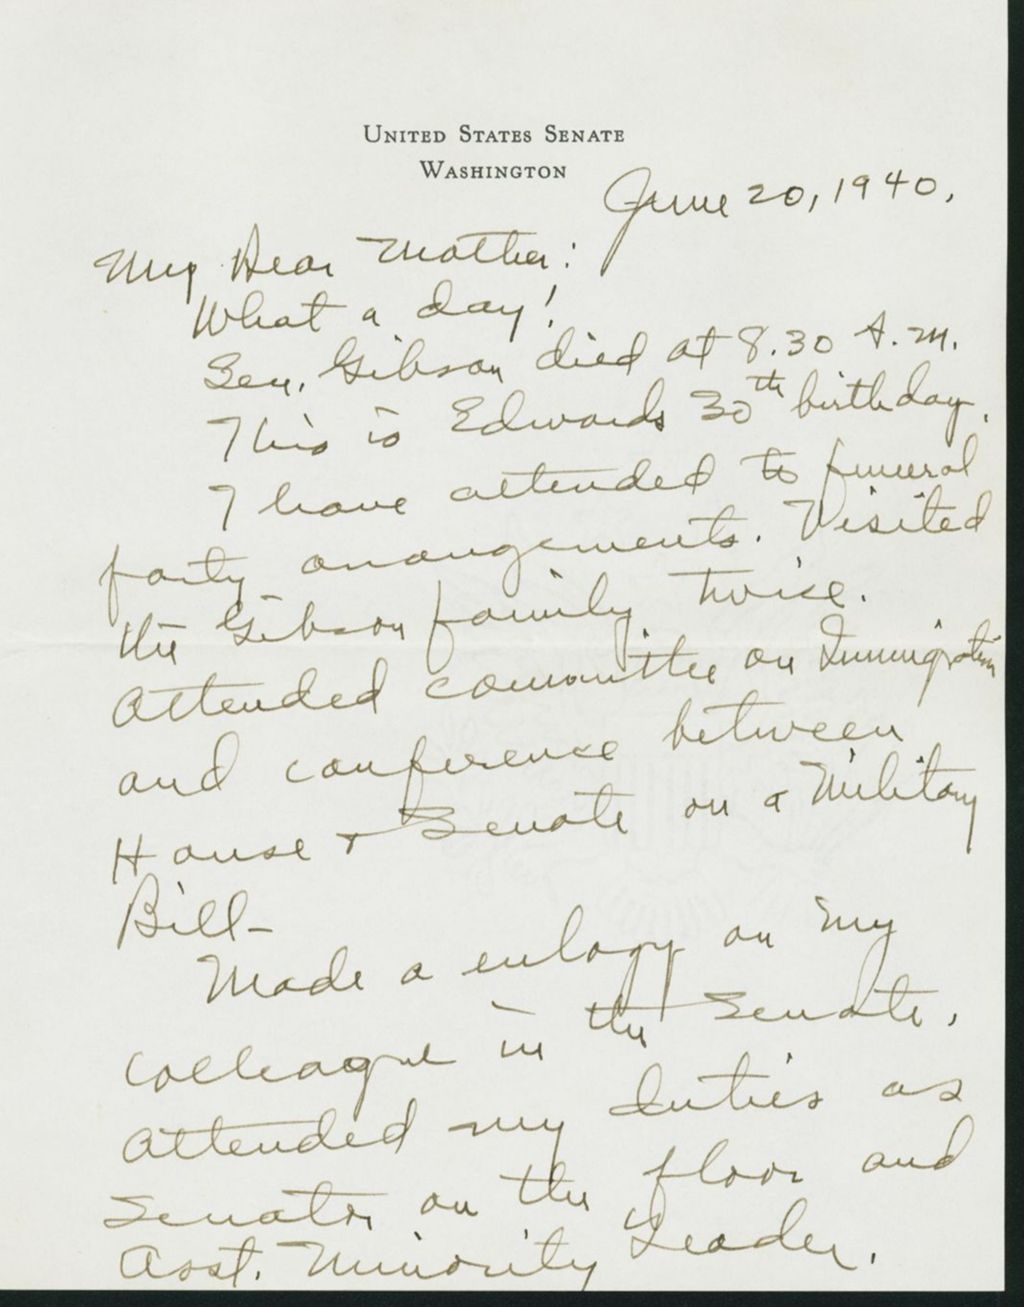 UNITED STATES SENATE
WASHINGTON
June 20, 1940.
My Dear Mother:
What a day!
Sen. Gibson died at 8.30 A.M.
This is Edwards 30th birthday.
I have attended to funeral
party arrangements. Visited
the Gibson family twice.
Attended committee on Immigration
and conference between
House + Senate on a Military
Bill-
Made a eulogy on my
colleague in the Senate,
attended my duties as
Senator on the floor and
Asst. Minority Leader.